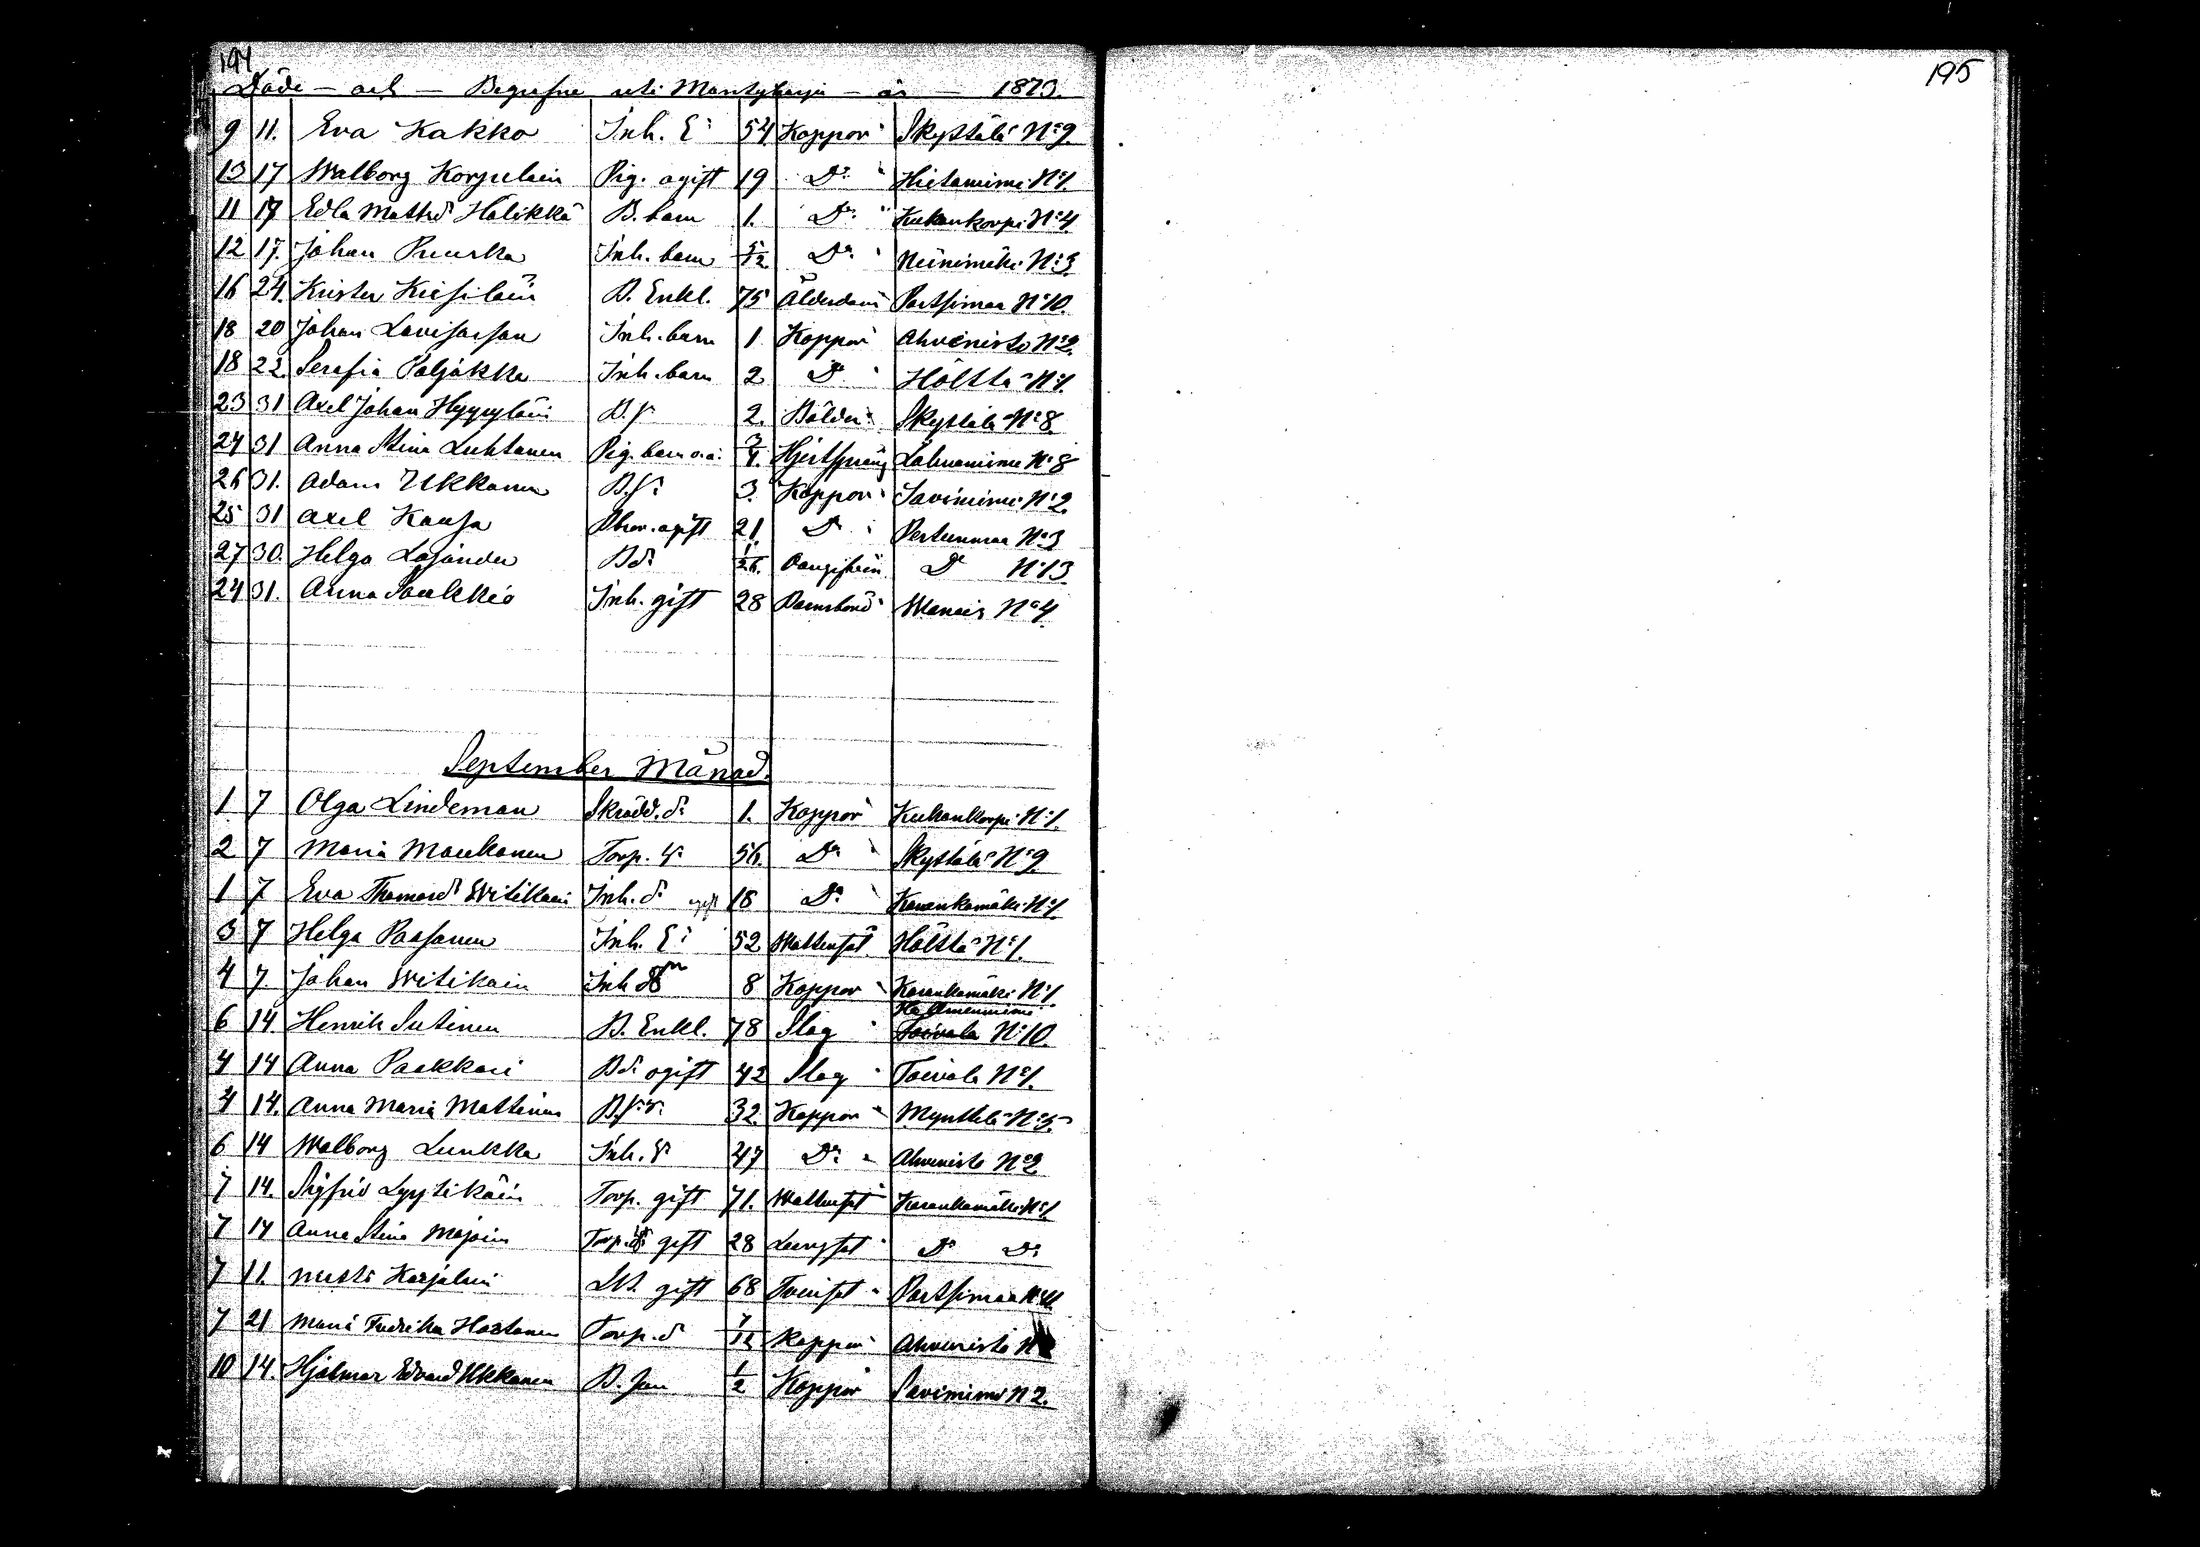 194
Döde — och — Begrafne uti Mäntyharju — år — 1873.
9 11. Eva Kakko Inh. E: 54 Koppor Skyttälä N:o 9.
13 17 Walborg Korpelain Pig. ogift 19 D:o Hietaniemi N:o 1.
11 17 Edla Mattsd:r Halikka B. barn 1. D:o Kukonkorpi N:o 4
12 17. Johan Puuska Inh. barn 5/12 D:o Neinimäki N:o 3.
16 24. Krister Kiesiläin B. Enkl. 75 Ålderdom Partsimaa N:o 10.
18 20 Johan Inh. barn 1 Koppor Ahvenisto N:o 2.
18 22. Serafia Paljakka Inh. barn 2 D:o Hölttä N:o 1.
23 31 Axel Johan Hyyryläin B. s: 2. Bölder Skyttälä N:o 8.
24 31 Anna Stina Luhtanen Pig. barn o.ä. 3/4. Hjertsprång Lahnaniemi N:o 8
26 31. Adam Ukkonen B. s: 3. Koppor Saviniemi N:o 2.
25 31 Axel Kausa ogift 21. D:o Pertunmaa N:o 3
27 30. Helga Lojander B d: D:o N:o 13.
24 31. Anna Inh. gift 28 Barnsbörd N:o 4.
September Månad.
1 7 Olga Lindeman Skrädd. d: 1. Koppor Kukonkorpi N:o 1.
2 7 Maria Maukonen Torp. E: 56. D:o Skyttälä N:o 9.
1 7 Eva Thomasd:r Witikain Inh. d: ogift 18 D:o Karankamäki N:o 1.
3 7 Helga Paasonen Inh. E: 52 Wattusot Hölttä N:o 1.
4 7. Johan Witikain Inh 8 Koppor Karankamäki N:o 1.
Halmenniemi
6 14 Henrik Sutinen B. Enkl. 78 Slag Toivola N:o 10.
4 14 Anna Paakkari B d: ogift 42 Slag Toivola N:o 1.
4 14. Anna Maria Mattinen B. s: h: 32. Koppor Mynttilä N:o 5.
6 14 Walborg Luukka Inh. h: 47 D:o Ahvenisto N:o 2
7 14. Sigfrid Lyytikäin Torp. gift 71. Wattusot Karankamäki N:o 1.
7 14 Anna Stina Torp. gift 28 Lungsot D:o D:o
7 11. Karjalain gift 68 Tvinsot Partsimaa
7 21 Maria Fredrika Hostanen Torp. d: 7/12 Koppor Ahvenisto N
10 14. Hjalmar Edvard Ukkonen B. son 1/2 Koppor Saviniemi N 2.
195